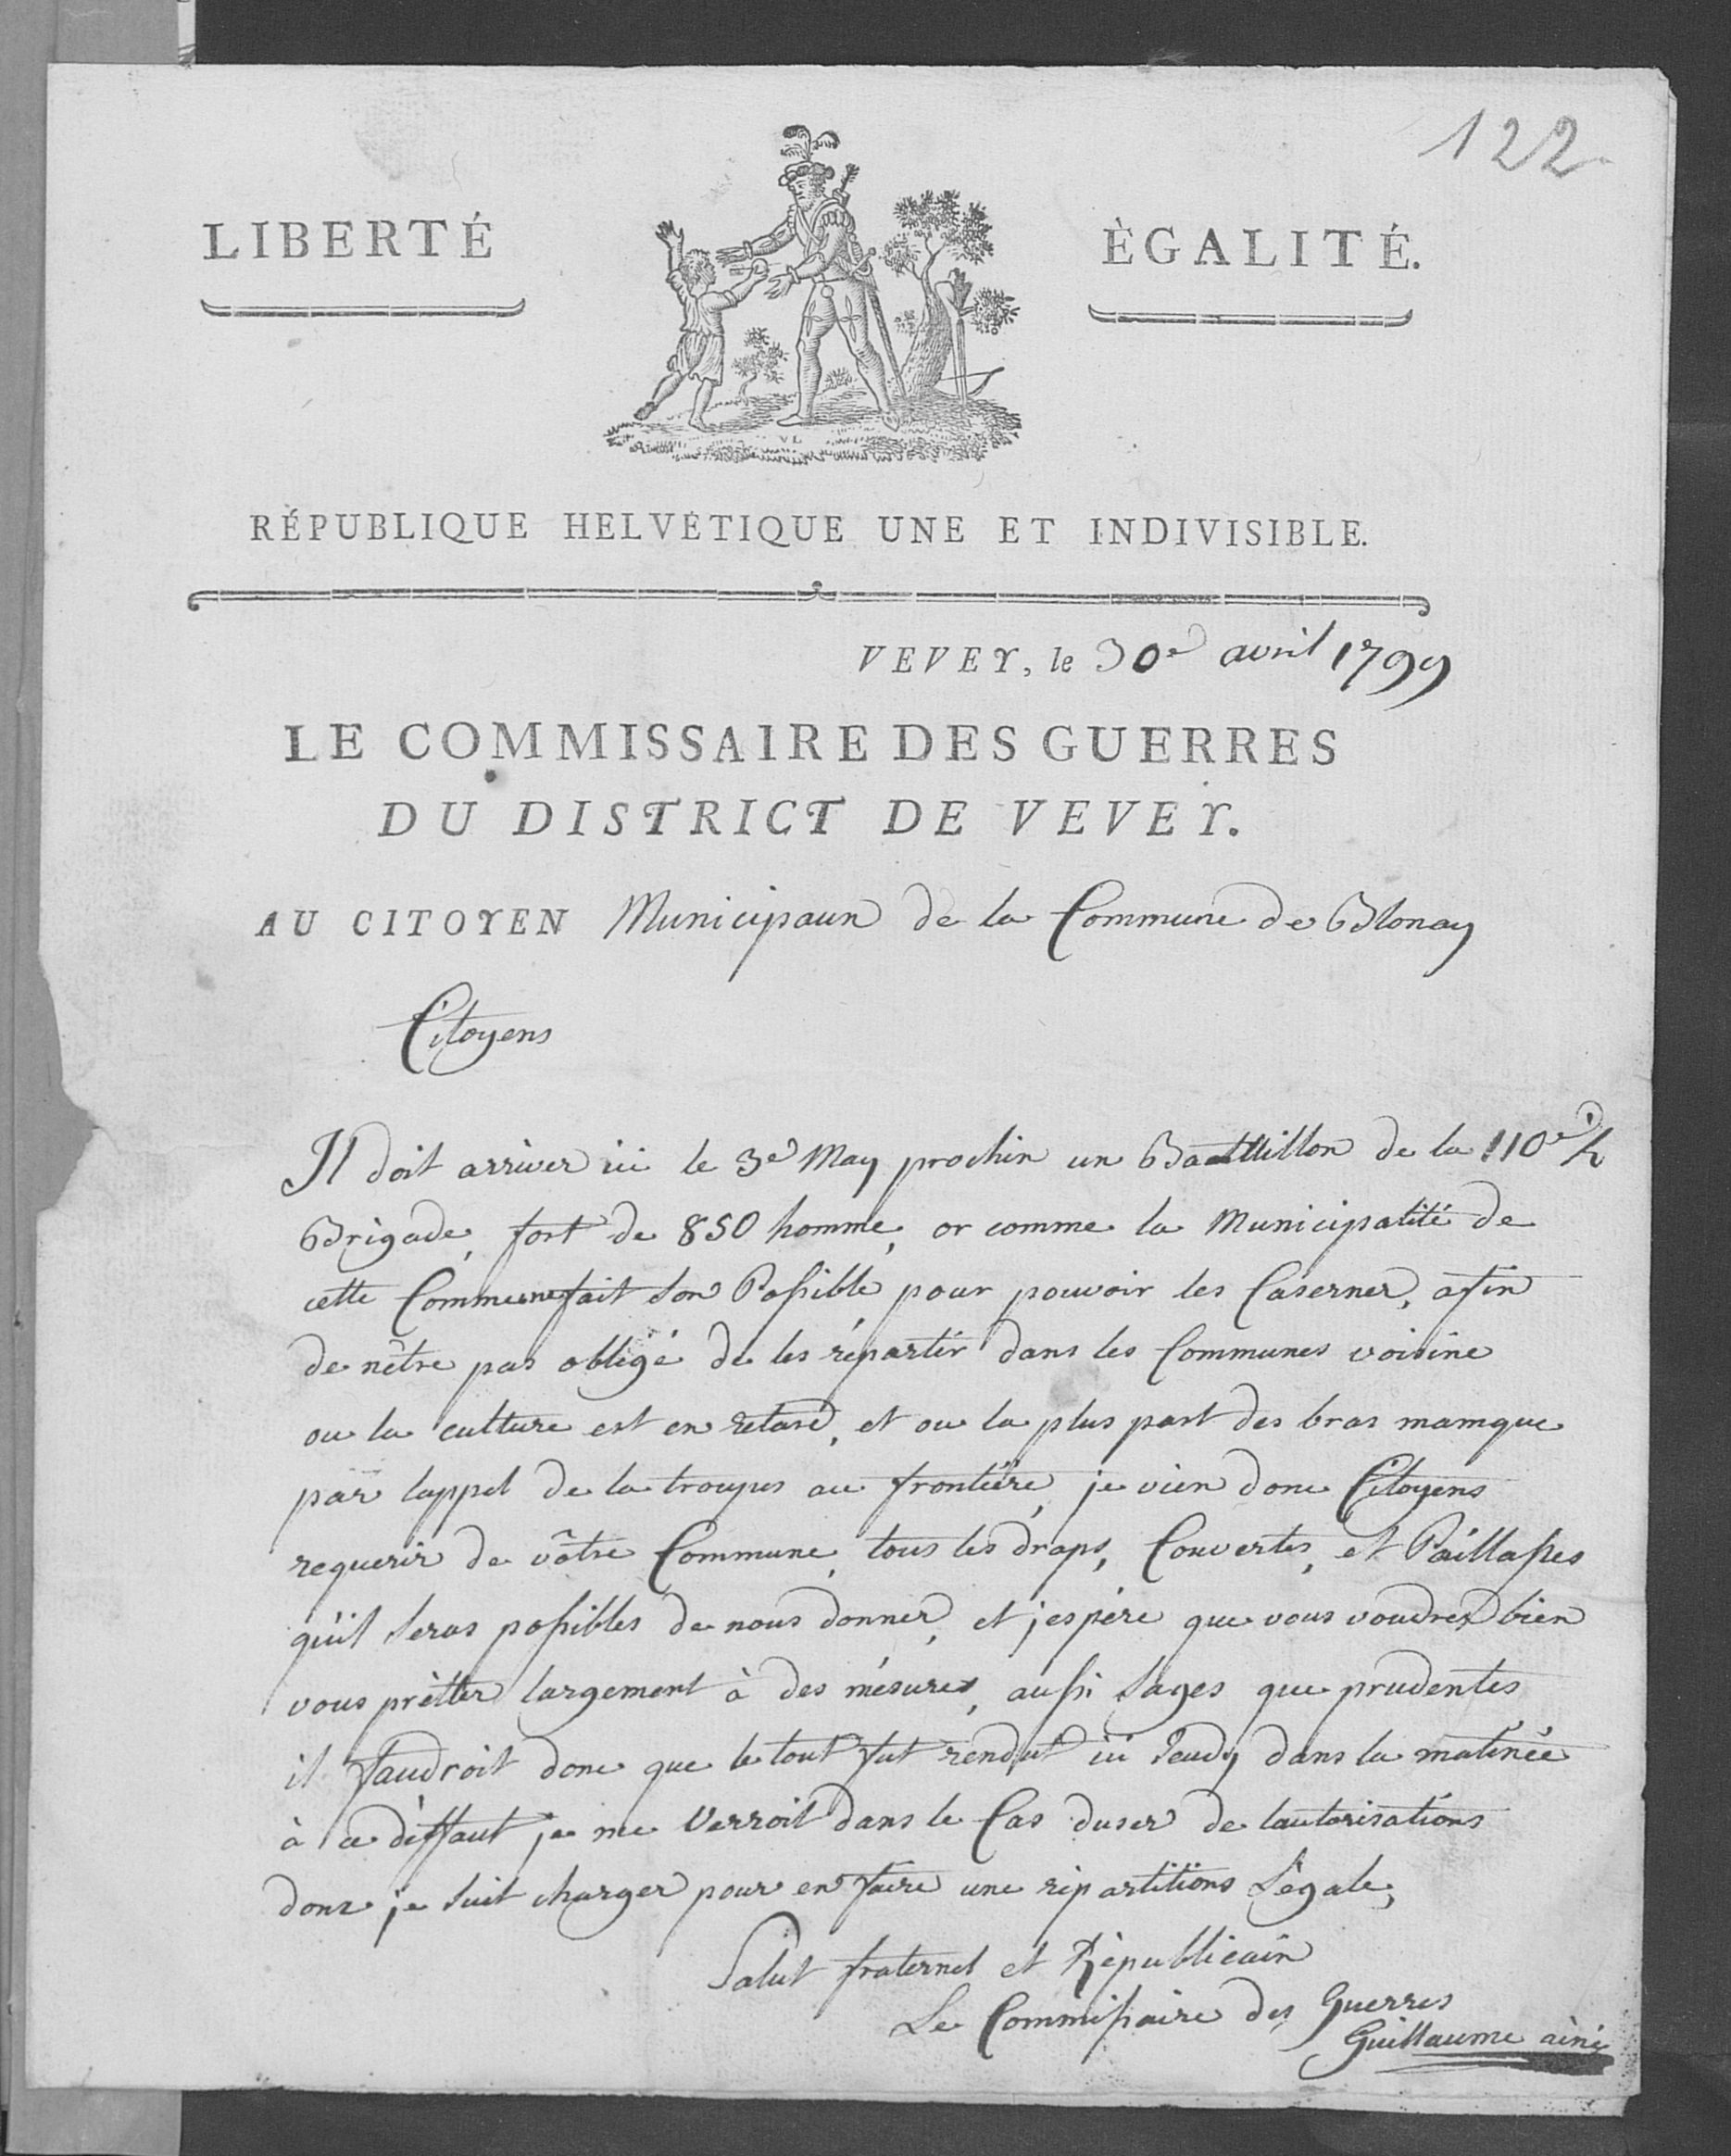 122
LIBERTÉ ÈGALITÉ.
VL
RÉPUBLIQUE HELVÉTIQUE UNE ET INDIVISIBLE.
VEVEY, le 30e avril 1799
LE COMMISSAIRE DES GUERRES
DU DISTRICT DE VEVEY.
AU CITOYEN Municipaux de la Commune de Blonay
Citoyens
Il doit arriver ici le 3e May prochin un Battillon de la 110e 1/2
Brigade, fort de 850 homme, or comme la Municipalité de
cette Commune fait son Possible pour pouvoir les Caserner, afin
de nêtre pas obligé de les répartir dans les Communes voisine
ou la culture est en retard, et ou la plus part des bras mamque
par lappel de la troupes au frontiére, je vien donc Citoyens
requerir de vôtre Commune, tous les draps, Couvertes, et Paillasses
qu'il seras possibles de nous donner, et j'espére que vous voudrez bien
vous prètter largement à des mésures, aussi sages que prudentes
il faudroit donc que le tout fut rendut ici Jeudy dans la matinée
à ce déffaut je me verroit dans le Cas duser de lautorisations
donc je suit charger pour en faire une répartitions Légale,
Salut fraternel et Républicain
Le Commissaire des Guerres
Guillaume ainé